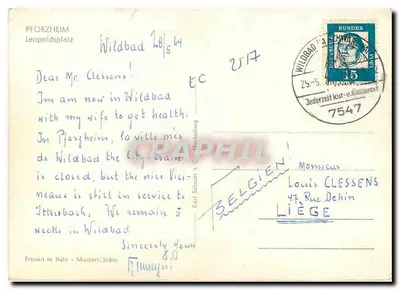 PFORZHEIM
Leopoldsplatz
Wildbad 28/5 64
Dear Mr. Clessens!
I'm am now in Wildbad
with my wife to get health.
In Pforzheim, la ville près
de Wildbad the City-tram
is closed, but the nice Vici-
neaux is still in service to
Ittersbach. We remain 5
weeks in Wildbad
Sincerely Yours
EC
2517
DEUTSCHE BUNDESPOST
15
WILDBAD
29.-5.
Jederzeit Kur- u. Badezeit
7547
CPAPHIL
BELGIEN!
Monsieur
Louis CLESSENS
47, Rue Dehin
LIÈGE
Printed in Italy